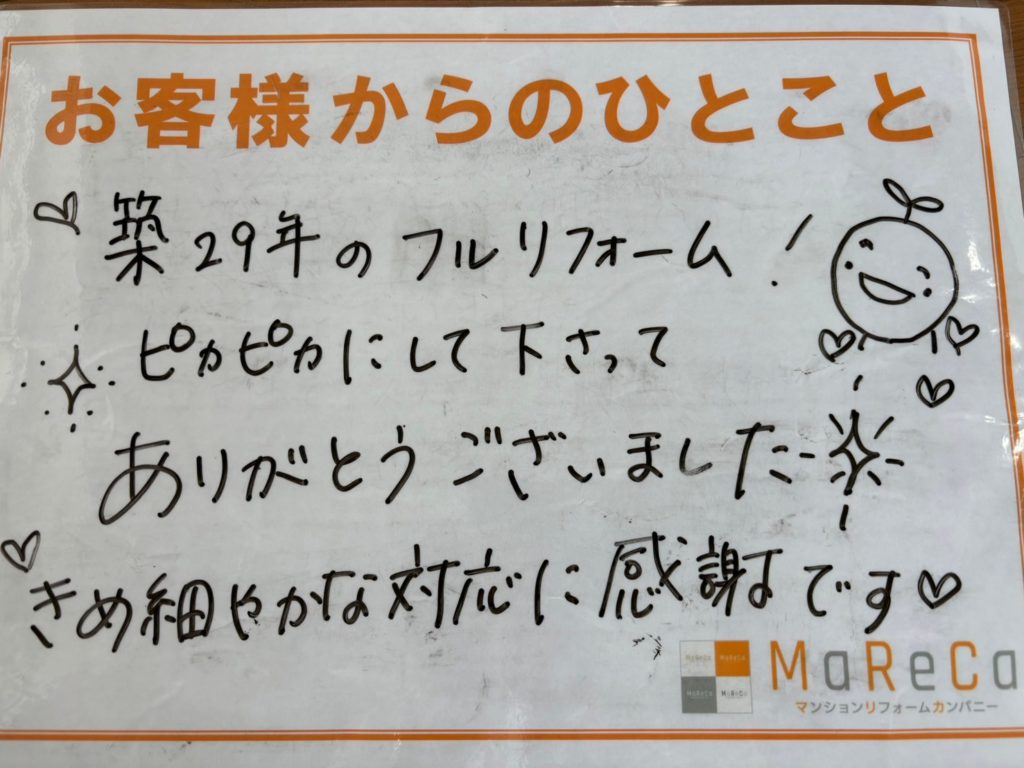 お客様からのひとこと
築29年のフルリフォーム!
ピカピカにして下さって
ありがとうございました
きめ細やかな対応に感謝です
MaReCa
マンションリフォームカンパニー